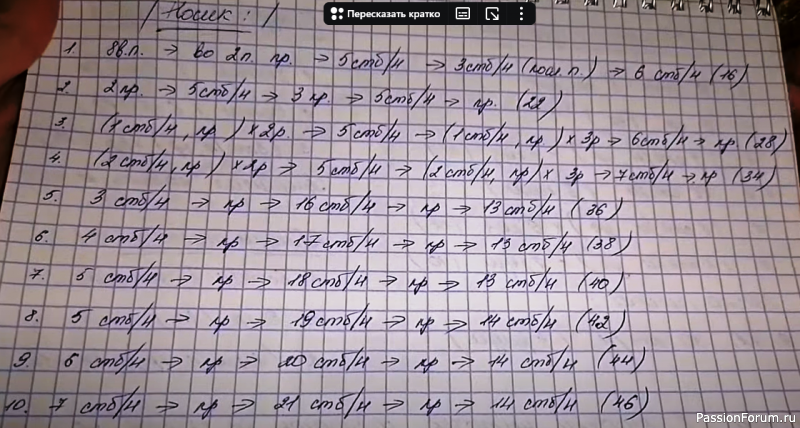 Пересказать кратко
| Носик: |
1. 8 в.п. → во 2 п. пр. → 5 стб/н → 3 стб/н (посл. п.) → 6 стб/н (16)
2. 2 пр. → 5 стб/н → 3 пр. → 5 стб/н → пр. (22)
3. (1 стб/н, пр) × 2р. → 5 стб/н → (1 стб/н, пр) × 3р → 6 стб/н → пр. (28)
4. (2 стб/н, пр) × 2р → 5 стб/н → (2 стб/н, пр) × 3р → 7 стб/н → пр (34)
5. 3 стб/н → пр → 16 стб/н → пр → 13 стб/н (36)
6. 4 стб/н → пр → 17 стб/н → пр → 13 стб/н (38)
7. 5 стб/н → пр → 18 стб/н → пр → 13 стб/н (40)
8. 5 стб/н → пр → 19 стб/н → пр → 14 стб/н (42)
9. 6 стб/н → пр → 20 стб/н → пр → 14 стб/н (44)
10. 7 стб/н → пр → 21 стб/н → пр → 14 стб/н (46)
PassionForum.ru